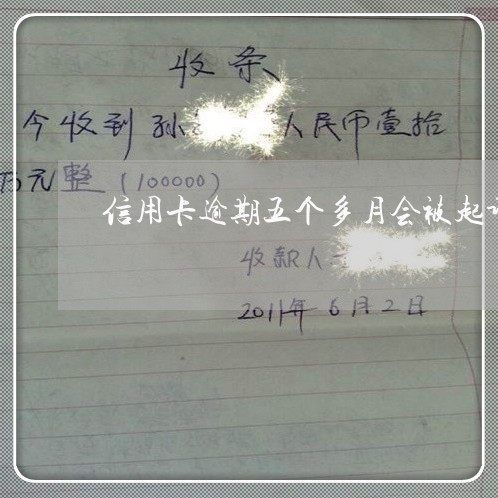 收条
今收到孙 人民币壹拾
万元整（100000）
信用卡逾期五个多月会被起
收款人
2011年6月2日